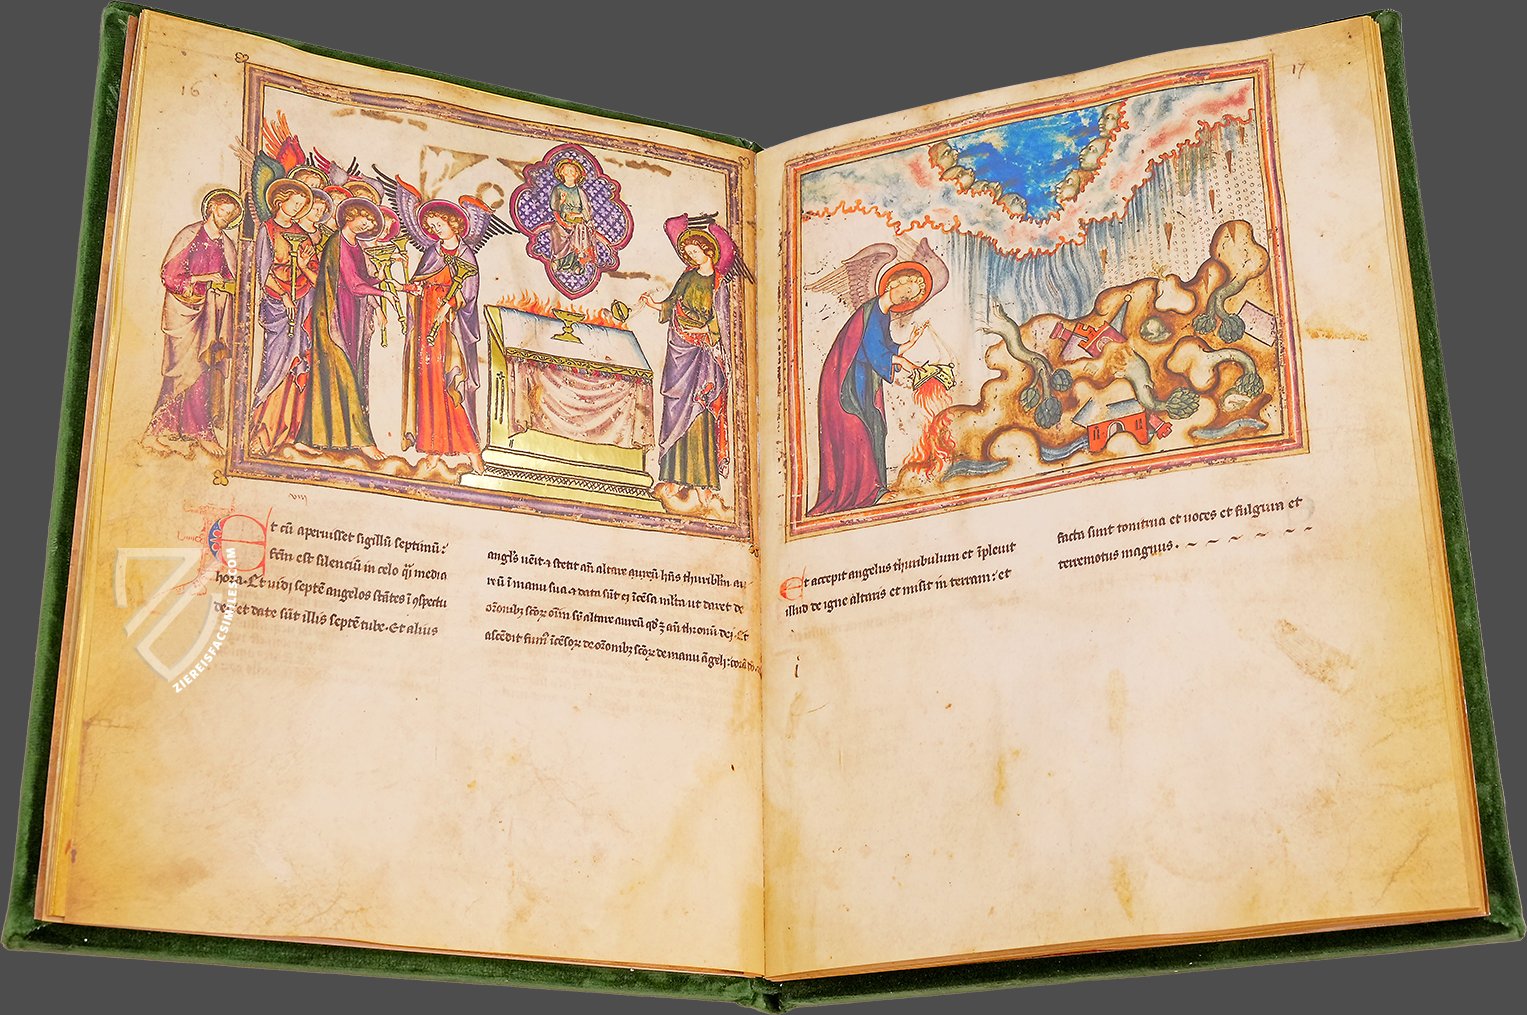 16
viii
Et cū aperuisset sigillū septimū:
factm est silenciū in celo qͣsi media
hora. Et vidi septē angelos stātes ī cspectu
dei et date sūt illis septē tube. Et alius
angls vēit ⁊ stetit añ altare aureū hñs thuriblm au
reū ī manu sua ⁊ data sūt ei īcēsa mlta ut daret de
oronibꝫ scōꝝ oīm sū altare aureū qd ē añ thronū dei. Et
ascēdit fumꝰ īcēsoꝝ de oronibꝫ scōꝝ de manu āgeli: corā do
17
Et accepit angelus thuribulum et īpleuit
illud de igne altaris et misit in terram: et
facta sunt tonitrua et uoces et fulgura et
terremotus magnus.
i
ZIEREISFACSIMILE.COM